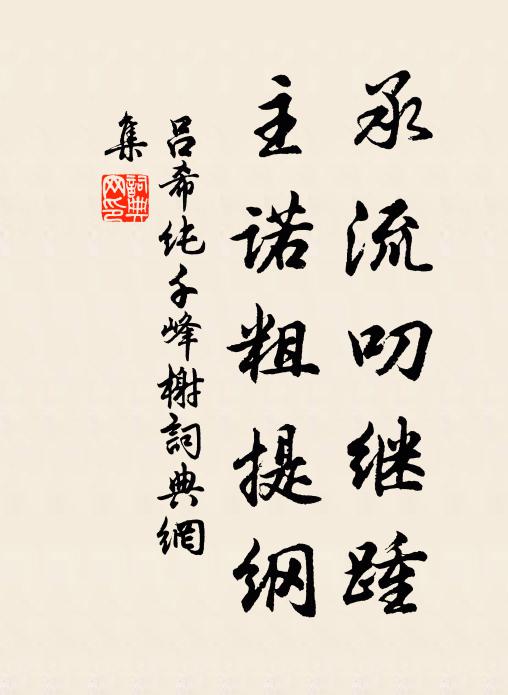 承流叨继踵
主诺粗提纲
吕希纯千峰榭詞典網
集
詞典网印